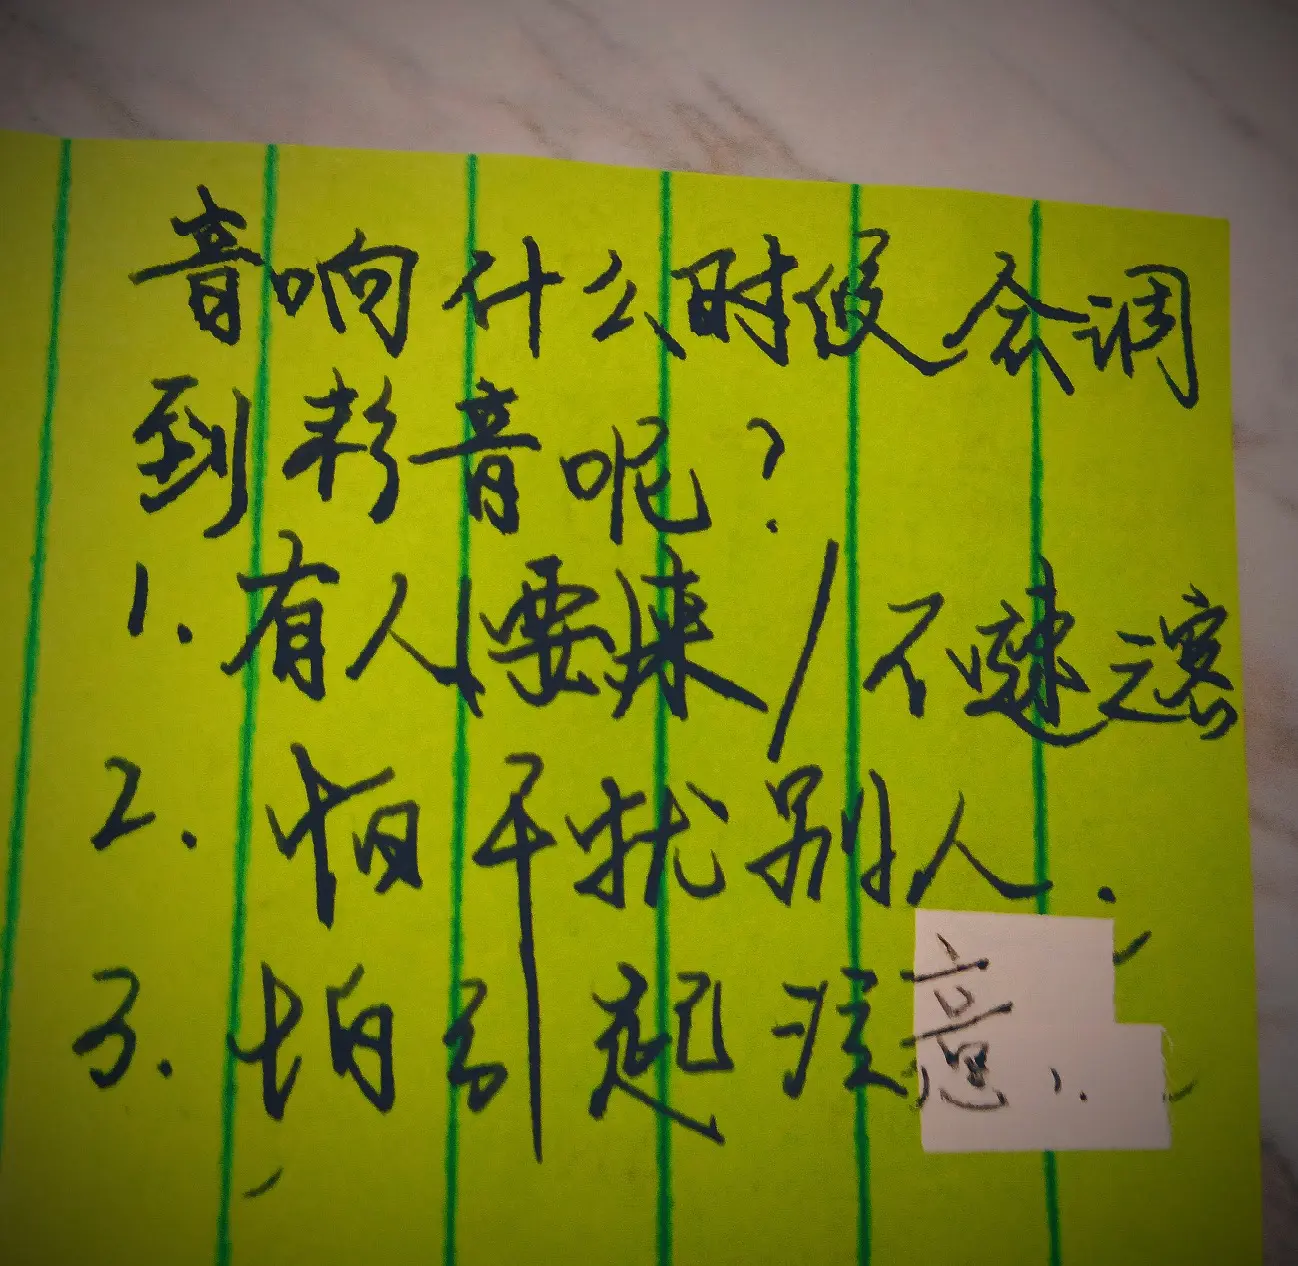 音响什么时候会调
到彩音呢?
1. 有人要来/不速之客
2. 怕干扰别人.
3. 怕引起注意..